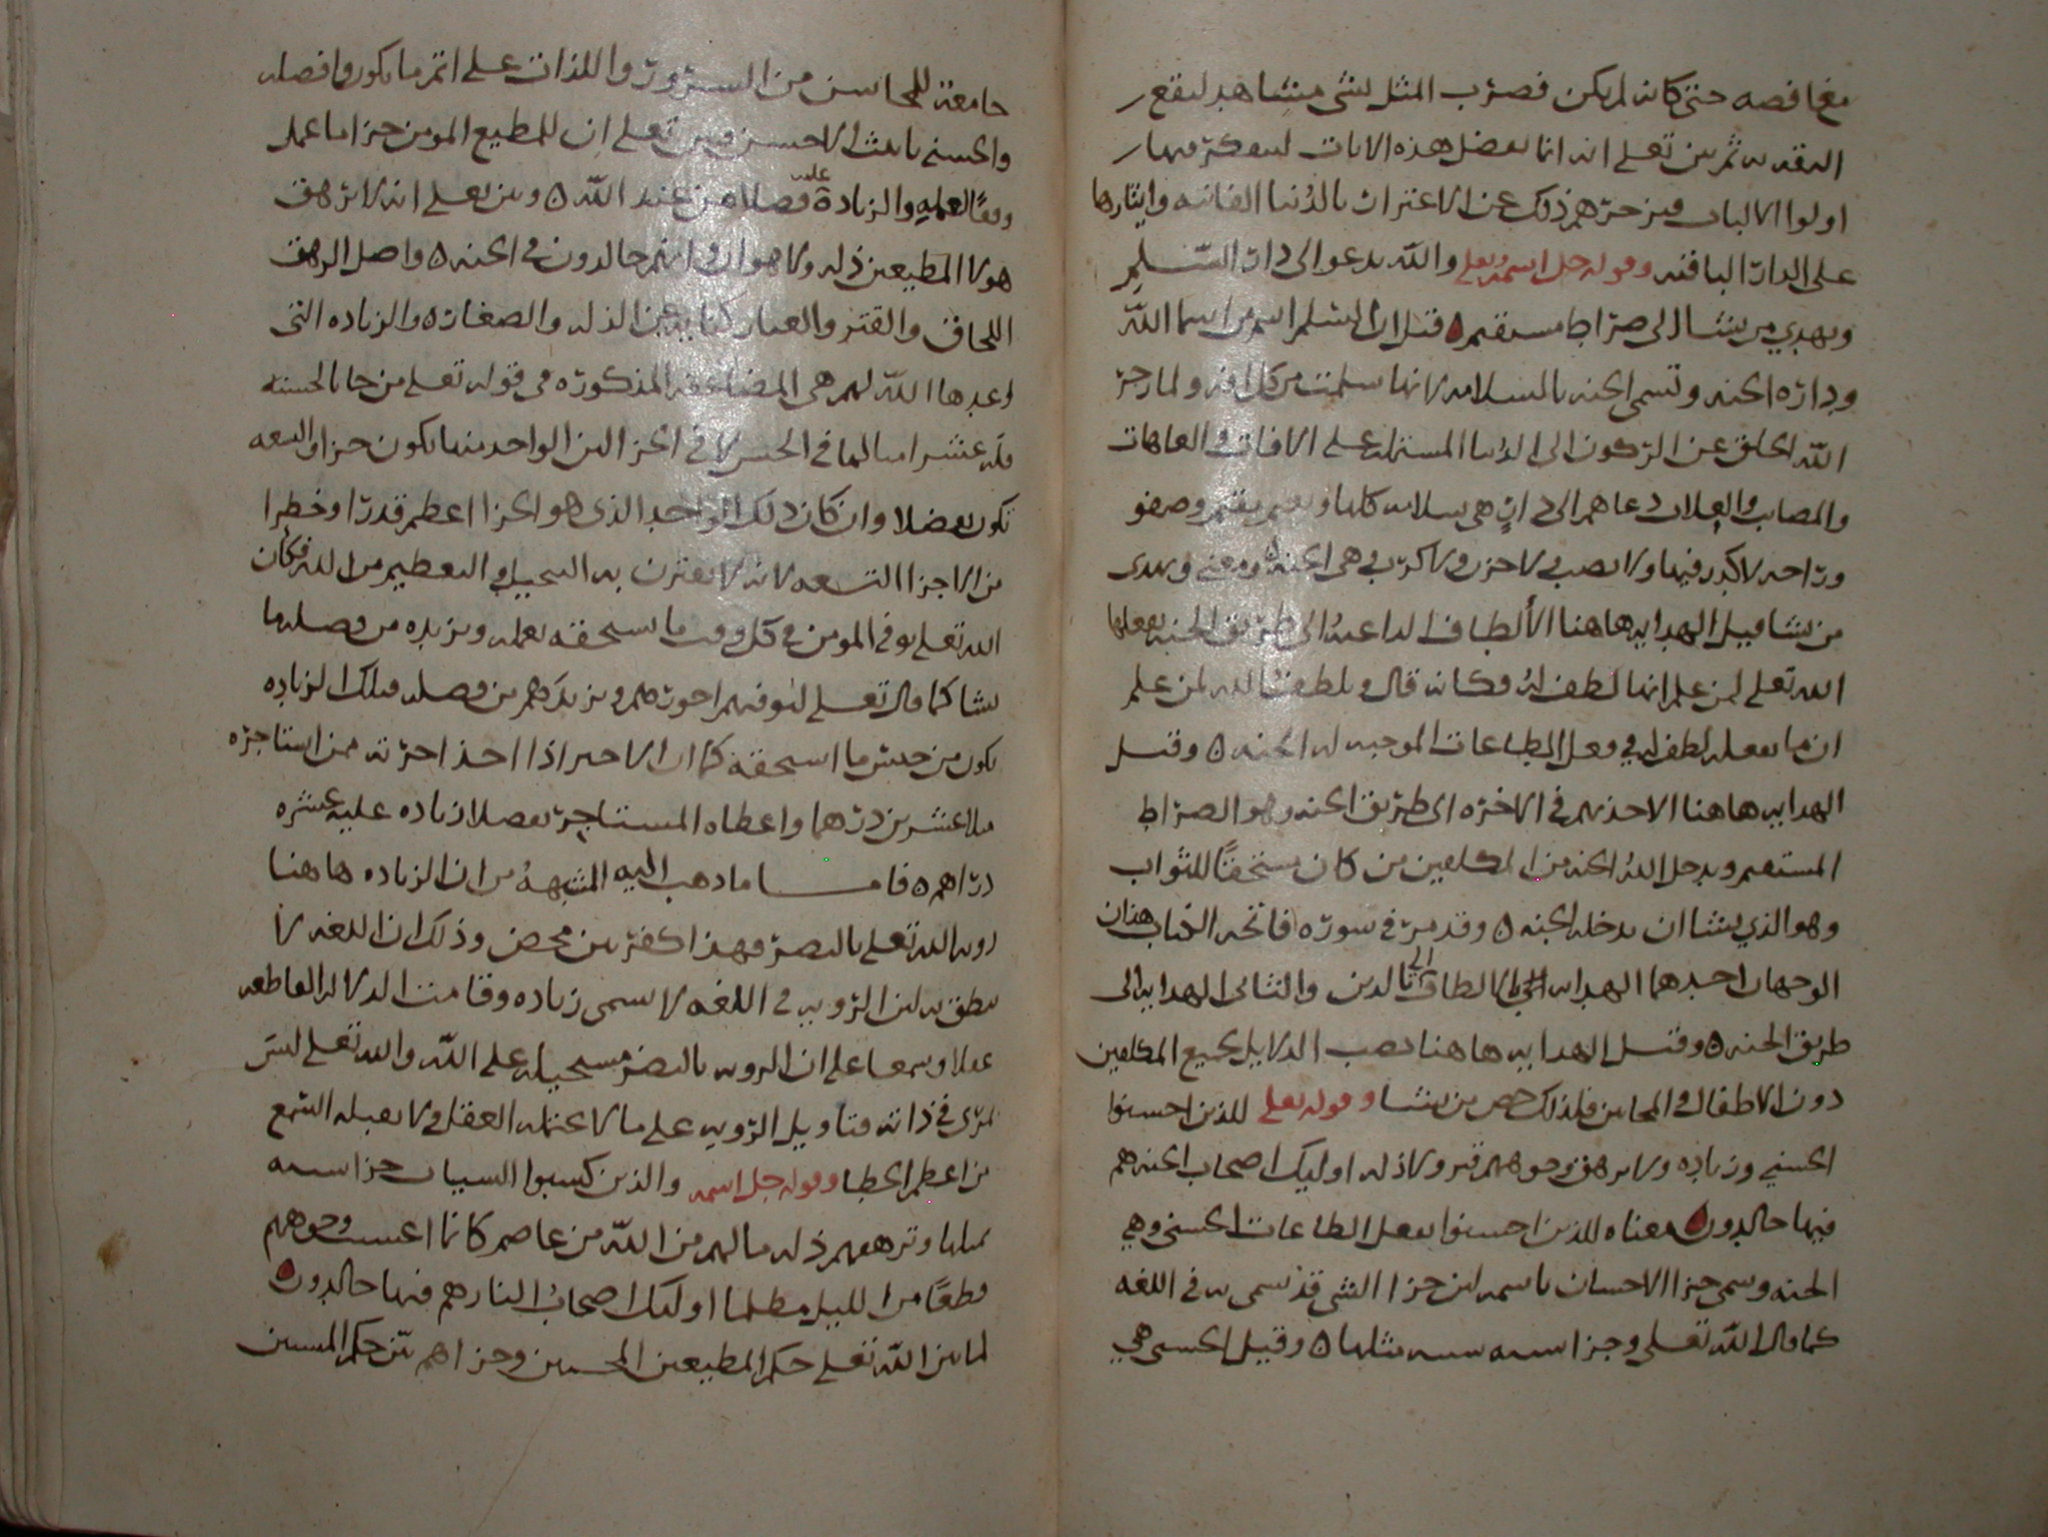 مغافصه حتى كانه لم يكن فضرب المثل بشي مشاهد ليقع
التقدير به ثم بين تعلى انه انما يفصل هذه الايات ليتفكر فيها
اولوا الالباب فيزجرهم ذلك عن الاغترار بالدنيا الفانيه وايثارها
على الدار الباقيه وقوله جل اسمه وتعلى والله يدعوا الى دار السلم
ويهدي من يشا الى صراط مستقيم ه قيل ان السلم اسم من اسما الله
وداره الجنه وتسمى الجنه بالسلامه لانها سلمت من كل افه ولما زجر
الله الخلق عن الركون الى الدنيا المشتمله على الافات والعاهات
والمصايب والعلات دعاهم الى دار هي سلامه كلها ونعيم مقيم وصفو
وراحه لا كدر فيها ولا نصب ولا حزن ولا كرب وهي الجنه ومعنى ويهدى
من يشا قيل الهدايه هاهنا الألطاف الداعيه الى طريق الجنه يفعلها
الله تعلى لمن علم انها لطف له فكانه قال ويلطف الله لمن علم
ان ما يفعله لطف له في فعل الطاعات الموجبه له الجنه ه وقيل
الهدايه هاهنا الاخذ بهم في الاخره الى طريق الجنه وهو الصراط
المستقيم ويدخل الله الجنه من المكلفين من كان مستحقا للثواب
وهو الذي يشا ان يدخله الجنه ه وقد مر في سوره فاتحه الكتاب هذان
الوجهان احدهما الهدايه الى الالطاف بالدين والثاني الهدايه الى
طريق الجنه ه وقيل الهدايه هاهنا نصب الدلايل لجميع المكلفين
دون الاطفال والمجانين فلذلك خص من يشا وقوله تعلى للذين احسنوا
الحسنى وزياده ولا يرهق وجوههم قتر ولا ذله اوليك اصحاب الجنه هم
فيها خالدون ه معناه للذين احسنوا بفعل الطاعات الحسنى وهي
الجنه وسمى جزا الاحسان باسمه لان جزا الشي قد سمى به في اللغه
كما قال الله تعلى وجزا سيه سيه مثلها ه وقيل الحسنى هي
جامعه للمحاسن من السرور واللذات على اتم ما يكون وافضله
والحسنى تانيث الاحسن فبين تعلى ان للمطيع المومن جزا ما عمل
وفقا لعمله والزيادة عليه فضلا من عند الله ه وبين تعلى انه لا ترهق
هولا المطيعين ذله ولا هوان وانهم خالدون في الجنه ه واصل الرهق
اللحاق والقتر والغبار كنايه عن الذله والصغار ه والزياده التي
وعدها الله لهم هي المضاعفه المذكوره في قوله تعلى من جا بالحسنه
فله عشر امثالها في الحسن لا في الجزا لان الواحد منها يكون جزا والتسعه
تكون تفضلا وان كان ذلك الواحد الذى هو الجزا اعظم قدرا وخطرا
من الاجزا التسعه لانه لا يقترن به التبجيل والتعظيم من الله فكان
الله تعلى يوفي المومن في كل وقت ما يستحقه بعمله ويزيده من فضله ما
يشا كما قال تعلى ليوفيهم اجورهم ويزيدهم من فضله فتلك الزياده
تكون من جنس ما استحقه كما ان الاجير اذا اخذ اجرته ممن استاجره
مثلا عشرين درهما واعطاه المستاجر تفضلا زياده عليه عشره
دراهم ه فاما ما ذهب اليه المشبهه من ان الزياده هاهنا
رويه الله تعلى بالبصر فهذا كفر من محض وذلك ان اللغه لا
تنطق به لان الرويه في اللغه لا تسمى زياده وقامت الدلاله القاطعه
عقلا وسمعا على ان الرويه بالبصر مستحيله على الله والله تعلى ليس
بمرى في ذاته فتاويل الرويه على ما لا يحتمله العقل ولا يقبله السمع
من اعظم الخطا وقوله جل اسمه والذين كسبوا السيات جزا سيه
بمثلها وترهقهم ذله ما لهم من الله من عاصم كانما اغشيت وجوههم
قطعا من الليل مظلما اوليك اصحاب النار هم فيها خالدون ه
لما بين الله تعلى حكم المطيعين المحسنين وجزاهم بين حكم المسيين